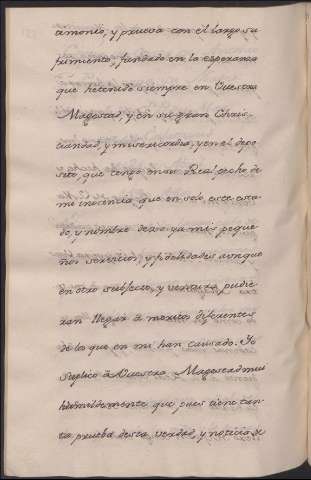 timonio, y prueva con el largo su
frimiento, fundado en la esperanza
que hetenido siempre en Vuestra
Magestad, y en su gran Chris-
tiandad, y misericordia, y en el depo
sito, que tengo en su Real pecho de
mi inocencia, que en solo este esta
do, y nombre dexo ya mis peque
ños servicios, y fidelidades aunque
en otro subjecto, y ventura pudie
ran llegar à meritos diferentes
de los que en mi han causado. Yo
suplico à Vuestra Magestad mui
humildemente que pues tiene tan-
ta prueba desta verdad, y noticia de